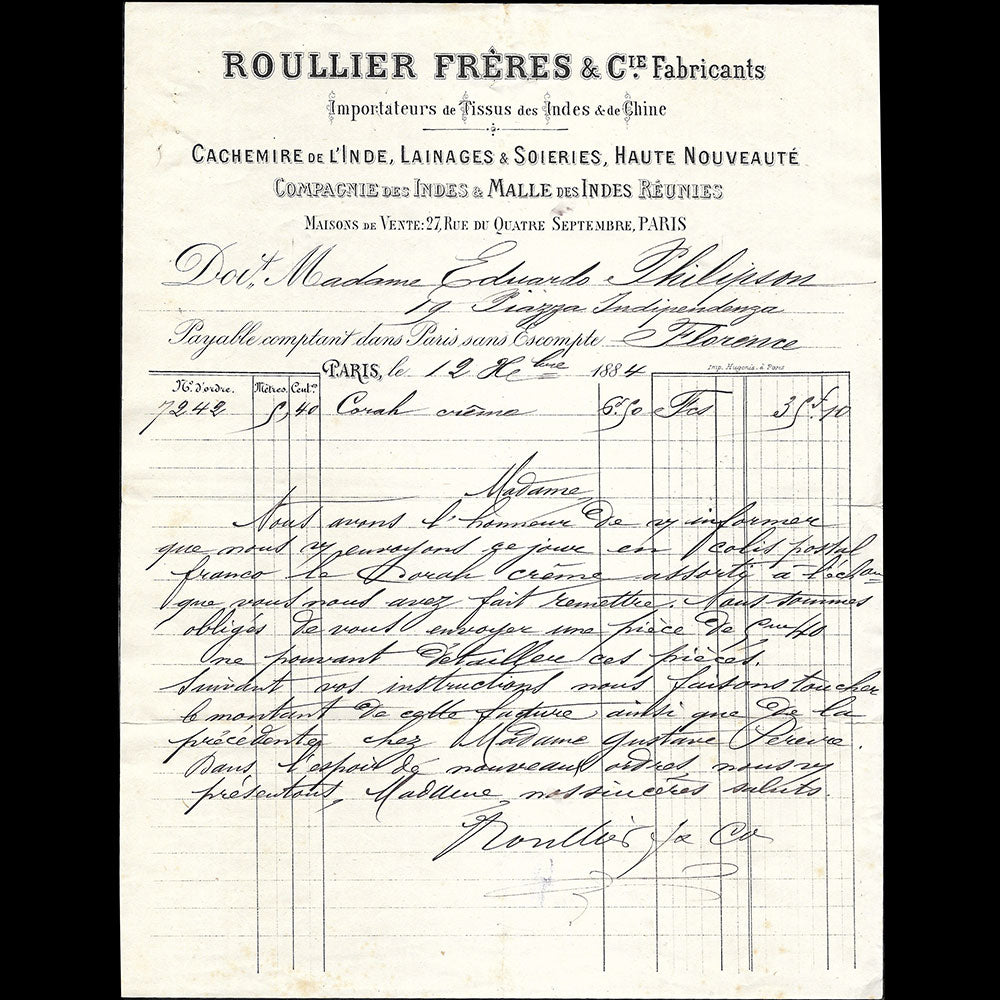 ROULLIER FRÈRES & CIE. Fabricants
Importateurs de Tissus des Indes & de Chine
CACHEMIRE DE L'INDE, LAINAGES & SOIERIES, HAUTE NOUVEAUTÉ
COMPAGNIE DES INDES & MALLE DES INDES RÉUNIES
MAISONS DE VENTE: 27, RUE DU QUATRE SEPTEMBRE, PARIS
Doit, Madame Eduardo Philipson
19 Piazza Indipendenza
Payable comptant dans Paris sans Escompte Florence
PARIS, le 12 Xbre 1884
Imp. Hugonis. à Paris
No. d'ordre. Mètres. Cent.es
7242 5, 40 Corah crème 6f.50 Fcs 35f.10
Madame,
Nous avons l'honneur de v/ informer
que nous v/ envoyons ce jour en colis postal
franco le Corah crème assorti à l'échon
que vous nous avez fait remettre. Nous sommes
obligés de vous envoyer une pièce de 5m40
ne pouvant détailler ces pièces.
Suivant vos instructions nous faisons toucher
le montant de cette facture ainsi que de la
précédente chez Madame Gustave Péreire.
Dans l'espoir de nouveaux ordres, nous v/
présentons, Madame, nos sincères saluts.
Roullier fs Co